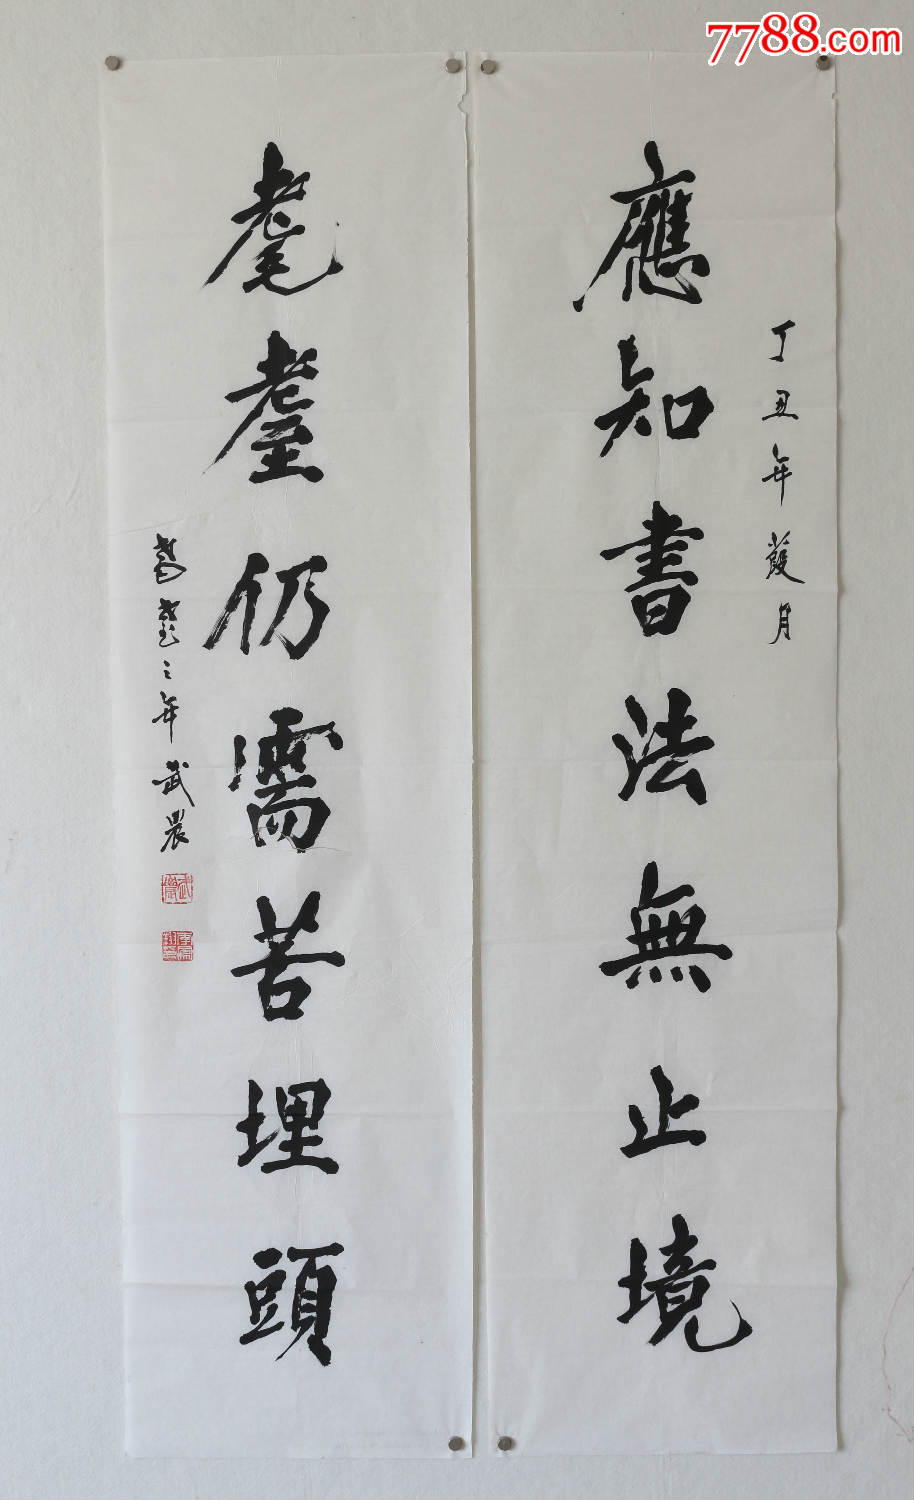 7788.com
丁丑年葭月
應知書法無止境
耄耋仍需苦埋頭
耋之年武晨